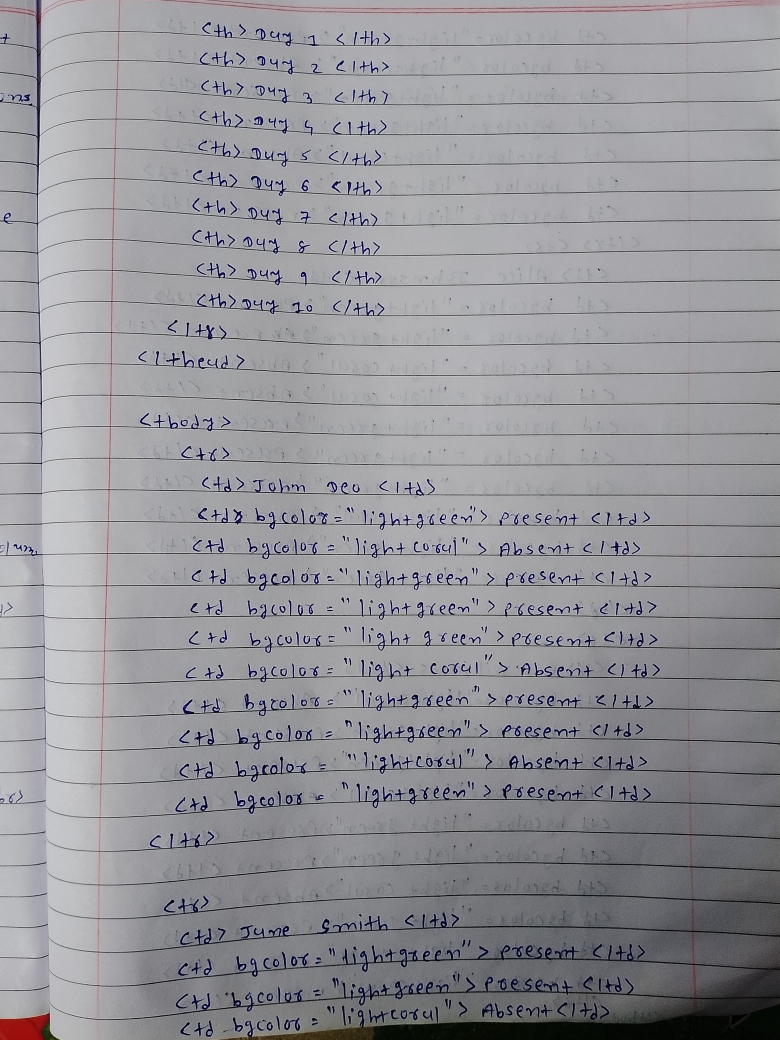 <th> Day 1 </th>
<th> Day 2 </th>
<th> Day 3 </th>
<th> Day 4 </th>
<th> Day 5 </th>
<th> Day 6 </th>
<th> Day 7 </th>
<th> Day 8 </th>
<th> Day 9 </th>
<th> Day 10 </th>
</tr>
</thead>
<tbody>
<tr>
<td> John Deo </td>
<td bgcolor="lightgreen"> Present </td>
<td bgcolor="lightcoral"> Absent </td>
<td bgcolor="lightgreen"> Present </td>
<td bgcolor="lightgreen"> Present </td>
<td bgcolor="light green"> Present </td>
<td bgcolor="light coral"> Absent </td>
<td bgcolor="lightgreen"> Present </td>
<td bgcolor="lightgreen"> Present </td>
<td bgcolor="lightcoral"> Absent </td>
<td bgcolor="lightgreen"> Present </td>
</tr>
<tr>
<td> Jane Smith </td>
<td bgcolor="lightgreen"> Present </td>
<td bgcolor="lightgreen"> Present </td>
<td bgcolor="lightcoral"> Absent </td>